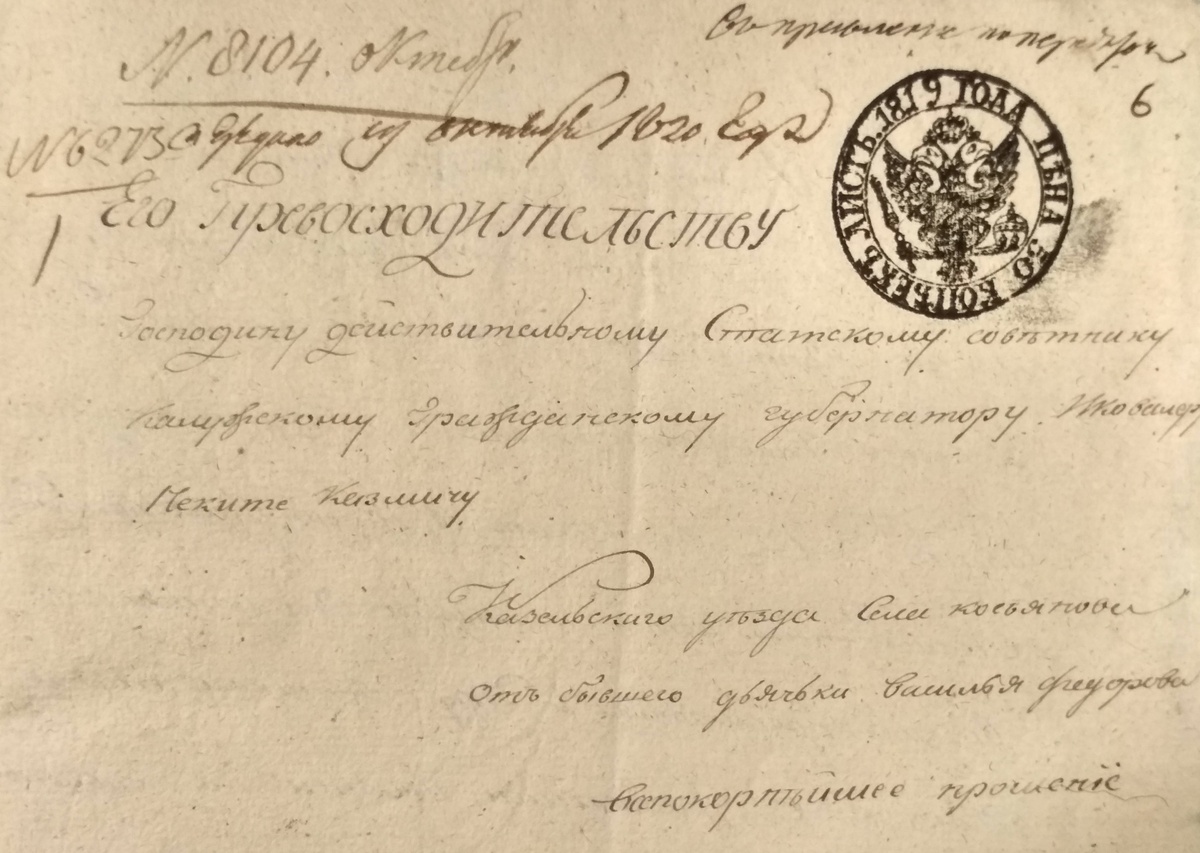 N. 8104. октебр.
6
N 6273 октебря 1820 Года
ЛИСТЪ. 1819 ГОДА ЦѢНА 50 КОПѢЕКЪ
Его Превосходительству
Господину действительному Статскому совѣтнику
Калужскому Гражданскому губернатору Икавалеру
Неките Казмичу
Казельскаго уѣзда Села косьянова
отъ бывшего дьячька василья федорова
всепокорнѣйшее прошение